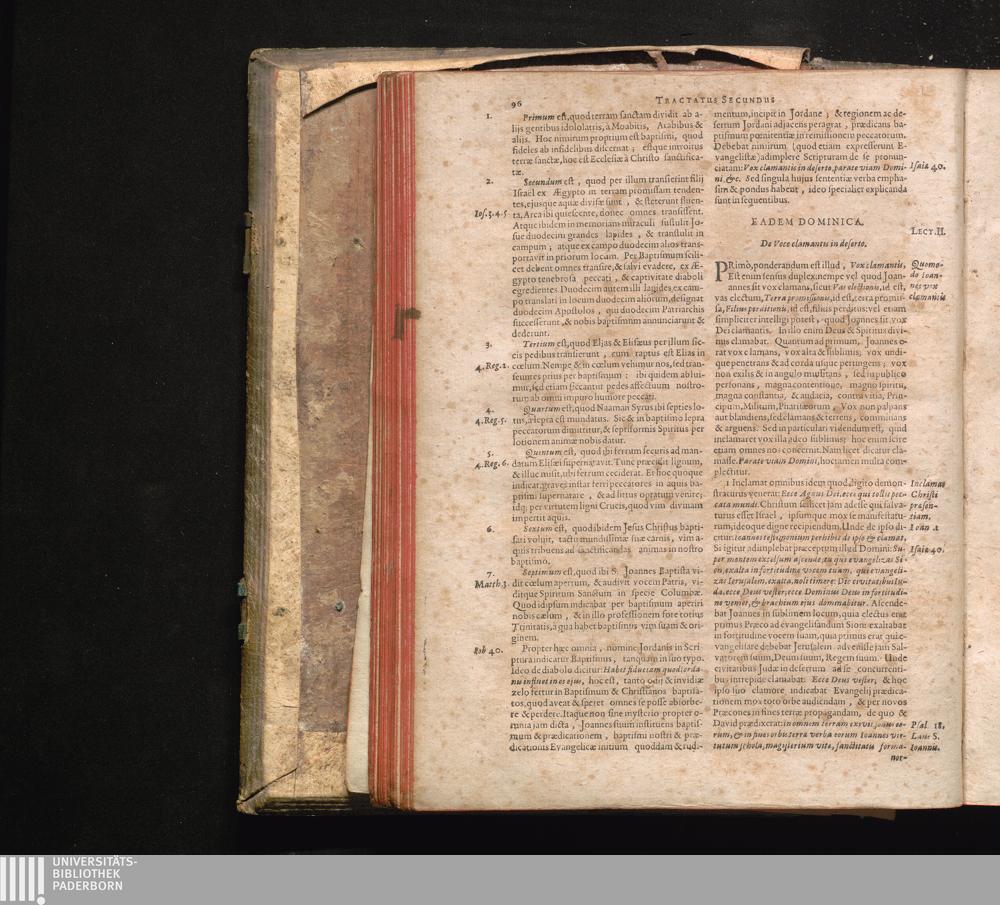 96
TRACTATUS SECUNDUS
1.
Primum est, quod terram sanctam dividit ab a-
lijs gentibus idololatris, à Moabitis, Arabibus &
alijs. Hoc nimirum proprium est baptismi, quod
fideles ab infidelibus discernat; estque introitus
terræ sanctæ, hoc est Ecclesiæ à Christo sanctifica-
tæ.
2.
Secundum est, quod per illum transierint filij
Israël ex Ægypto in terram promissam tenden-
tes, ejusque aquæ divisæ sunt, & steterunt fluen-
Ios. 3. 4. 5
ta, Arca ibi quiescente, donec omnes transissent.
Atque ibidem in memoriam miraculi sustulit Jo-
sue duodecim grandes lapides, & transtulit in
campum; atque ex campo duodecim alios trans-
portavit in priorum locum. Per Baptismum scili-
cet debent omnes transire, & salvi evadere, ex Æ-
gypto tenebrosa peccati, & captivitate diaboli
egredientes. Duodecim autem illi lapides, ex cam-
po translati in locum duodecim aliorum, designat
duodecim Apostolos, qui duodecim Patriarchis
successerunt, & nobis baptismum annunciarunt &
dederunt.
3.
Tertium est, quod Elias & Elisæus per illum sic-
cis pedibus transierunt, cum raptus est Elias in
4. Reg. 2.
cœlum. Nempe & in cœlum vehimur nos, sed trans-
feuntes prius per baptismum: ibi quidem ablui-
mur, sed etiam siccantur pedes affectuum nostro-
rum ab omni impuro humore peccati.
4.
Quartum est, quod Naaman Syrus ibi septies lo-
4. Reg. 5.
tus, à lepra est mundatus. Sic & in baptismo lepra
peccatorum dimittitur, & septiformis Spiritus per
lotionem animæ nobis datur.
5.
Quintum est, quod ibi ferrum securis ad man-
4. Reg. 6.
datum Elisæi supernatavit. Tunc præcidit lignum,
& illuc misit, ubi ferrum ceciderat. Et hoc quoque
indicat, graves instar ferri peccatores in aquis ba-
ptismi supernatare, & ad littus optatum venire;
idq; per virtutem ligni Crucis, quod vim divinam
impertit aquis.
6.
Sextum est, quod ibidem Jesus Christus bapti-
sari voluit, tactu mundissimæ suæ carnis, vim a-
quis tribuens ad sanctificandas animas in nostro
baptismo.
7.
Septimum est, quod ibi S. Joannes Baptista vi-
Matth. 3.
dit cœlum apertum, & audivit vocem Patris, vi-
ditque Spiritum Sanctum in specie Columbæ.
Quod id ipsum indicabat per baptismum aperiri
nobis cælum, & in illo professionem fore totius
Trinitatis, a qua habet baptismus vim suam & ori-
ginem.
Iob 40.
Propter hæc omnia, nomine Jordanis in Scri-
ptura indicatur Baptismus, tanquam in suo typo.
Ideo de diabolo dicitur: Habet fiduciam quod Iorda-
nis influat in os ejus, hoc est, tanto odij & invidiæ
zelo fertur in Baptismum & Christianos baptisa-
tos, quod aveat & speret omnes se posse absorbe-
re & perdere. Itaque non sine mysterio propter o-
mnia jam dicta, Joannes suum instituens baptis-
mum & prædicationem, baptismi nostri & præ-
dicationis Evangelicæ initium quoddam & rudi-
mentum, incipit in Jordane; & regionem ac de-
sertum Jordani adjacens peragrat, prædicans ba-
ptismum pœnitentiæ in remissionem peccatorum.
Debebat nimirum (quod etiam expresserunt E-
vangelistæ) adimplere Scripturam de se pronun-
ciatam: Vox clamantis in deserto, parate viam Domi-
Isaiæ 40.
ni. &c. Sed singula hujus sententiæ verba empha-
sim & pondus habent, ideo specialier explicanda
sunt in sequentibus.
EADEM DOMINICA.
LECT. II.
De Voce clamantis in deserto.
PRimò, ponderandum est illud, Vox clamantis,
Quomo-
Est enim sensus duplex: nempe vel quod Joan-
do Ioan-
nes sit vox clamans, sicut Vas electionis, id est,
nes vox
vas electum, Terra promissionis, id est, terra promis-
clamantis
sa, Filius perditionis, id est, filius perditus: vel etiam
simpliciter intelligi potest, quod Joannes sit vox
Dei clamantis. In illo enim Deus & Spiritus divi-
nus clamabat. Quantum ad primum, Joannes e-
rat vox clamans, vox alta & sublimis; vox undi-
que penetrans & ad corda usque pertingens; vox
non exilis & in angulo mussitans, sed in publico
personans, magna contentione, magno spiritu,
magna constantia, & audacia, contra vitia, Prin-
cipum, Militum, Pharisæorum. Vox non palpans
aut blandiens, sed clamans & terrens, comminans
& arguens. Sed in particulari videndum est, quid
inclamaret vox illa adeo sublimis; hoc enim scire
etiam omnes nos concernit. Nam licet dicatur cla-
masse. Parate viam Domini, hoc tamen multa com-
plectitur.
1 Inclamat omnibus idem quod digito demon-
Inclamat
straturus venerat: Ecce Agnus Dei, ecce qui tollis pec-
Christi
cata mundi. Christum scilicet jam adesse qui salva-
præsen-
turus esset Israel, ipsumque mox se manifestatu-
tiam.
rum, ideoque digne recipiendum. Unde de ipso di-
Ioan. 1
citur: Ioannes testimonium perhibet de ipso & clamat.
Si igitur adimplebat præceptum illud Domini: Su-
Isaiæ 40.
per montem excelsum ascende, tu qui evangelizas Si-
on, exalta in fortitudine vocem tuam, qui evangeli-
zas Ierusalem, exalta, noli timere: Dic civitatibus Iu-
da, ecce Deus vester, ecce Dominus Deus in fortitudi-
ne veniet, & brachium ejus dominabitur. Ascende-
bat Joannes in sublimem locum, quia electus erat
primus Præco ad evangelisandum Sion: exaltabat
in fortitudine vocem suam, quia primus erat qui e-
vangelisare debebat Jerusalem advenisse jam Sal-
vatorem suum, Deum suum, Regem suum. Unde
civitatibus Judæ in desertum ad se concurrenti-
bus intrepide clamabat: Ecce Deus vester, & hoc
ipso suo clamore indicabat Evangelij prædica-
tionem mox toto orbe audiendam, & per novos
Præcones in fines terræ propagandam, de quo &
David prædixerat: in omnem terram exivit sonus eo-
Psal. 18.
rum, & in fines orbis terræ verba eorum Ioannes vir-
Laus S.
tutum schola, magisterium vitæ, sanctitatis forma-
Ioannis.
nor-
UNIVERSITÄTS-
BIBLIOTHEK
PADERBORN